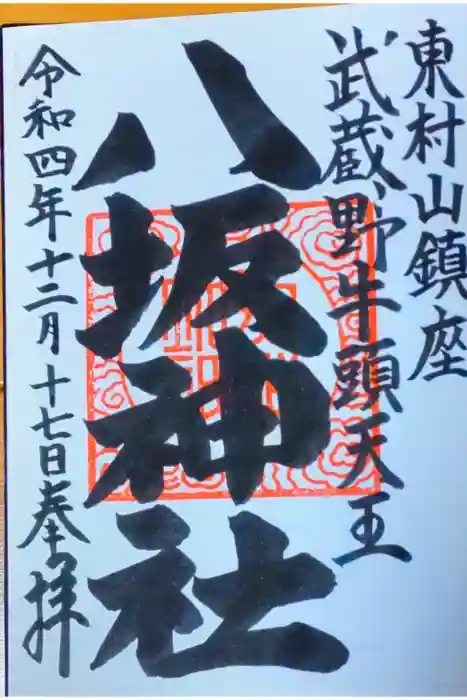 東村山鎮座
武蔵野牛頭天王
八坂神社
令和四年十二月十七日奉拝